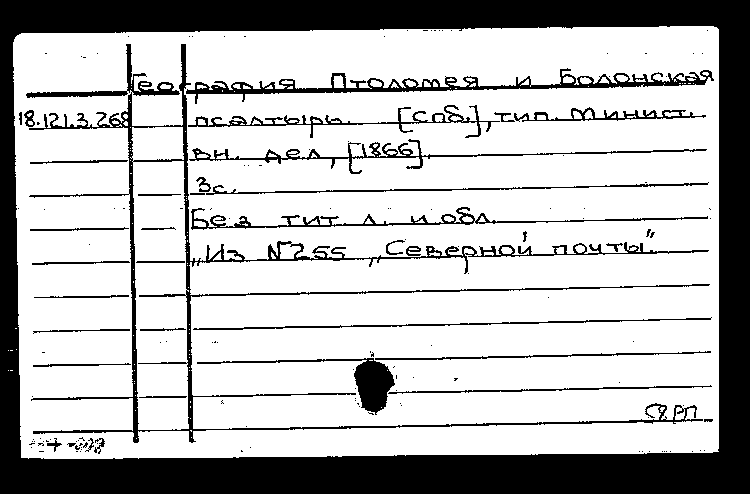 География Птоломея и Болонская
18.121.3.268 псалтырь. [Спб.], тип. Минист.
вн. дел, [1866].
3с.
Без тит. л. и обл.
„Из №255 „Северной почты".